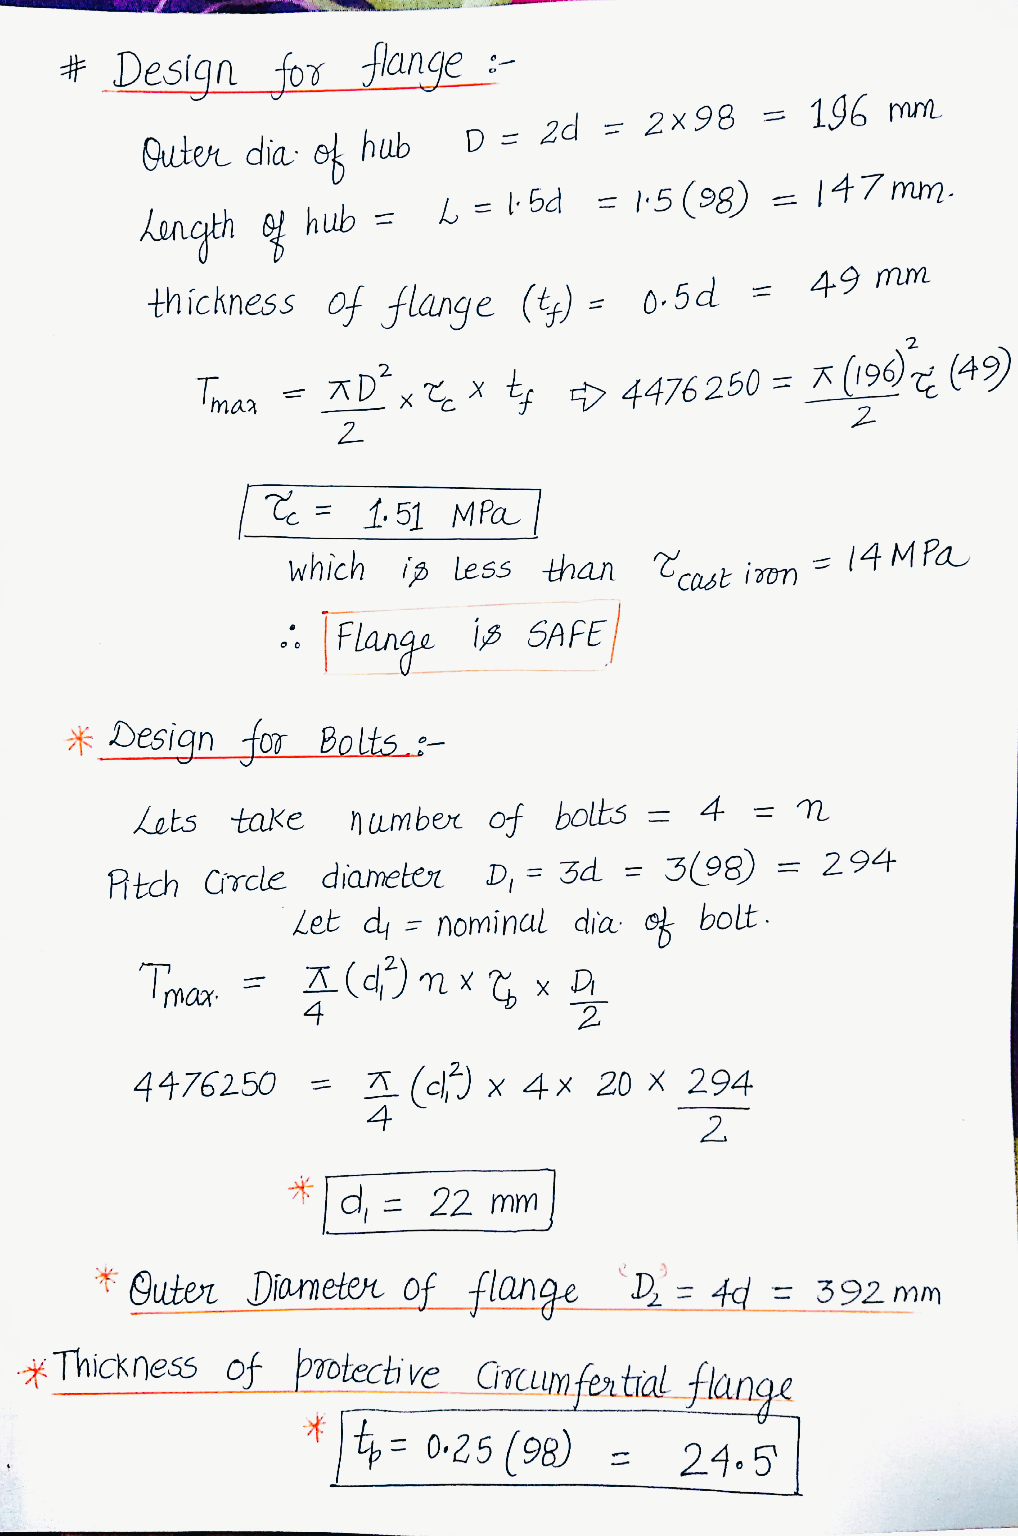 # Design for flange :-
Outer dia. of hub D = 2d = 2×98 = 196 mm
Length of hub = L = 1.5d = 1.5(98) = 147 mm.
thickness of flange (t_f) = 0.5d = 49 mm
T_max = πD²/2 × τ_c × t_f ⇒ 4476250 = π(196)²/2 τ_c (49)
τ_c = 1.51 MPa
which is less than τ_cast iron = 14 MPa
∴ Flange is SAFE
* Design for Bolts :-
Lets take number of bolts = 4 = n
Pitch Circle diameter D₁ = 3d = 3(98) = 294
Let d₁ = nominal dia. of bolt.
T_max. = π/4 (d₁²) n × τ_b × D₁/2
4476250 = π/4 (d₁²) × 4 × 20 × 294/2
* d₁ = 22 mm
* Outer Diameter of flange 'D₂' = 4d = 392 mm
* Thickness of protective Circumfertial flange
* t_p = 0.25 (98) = 24.5